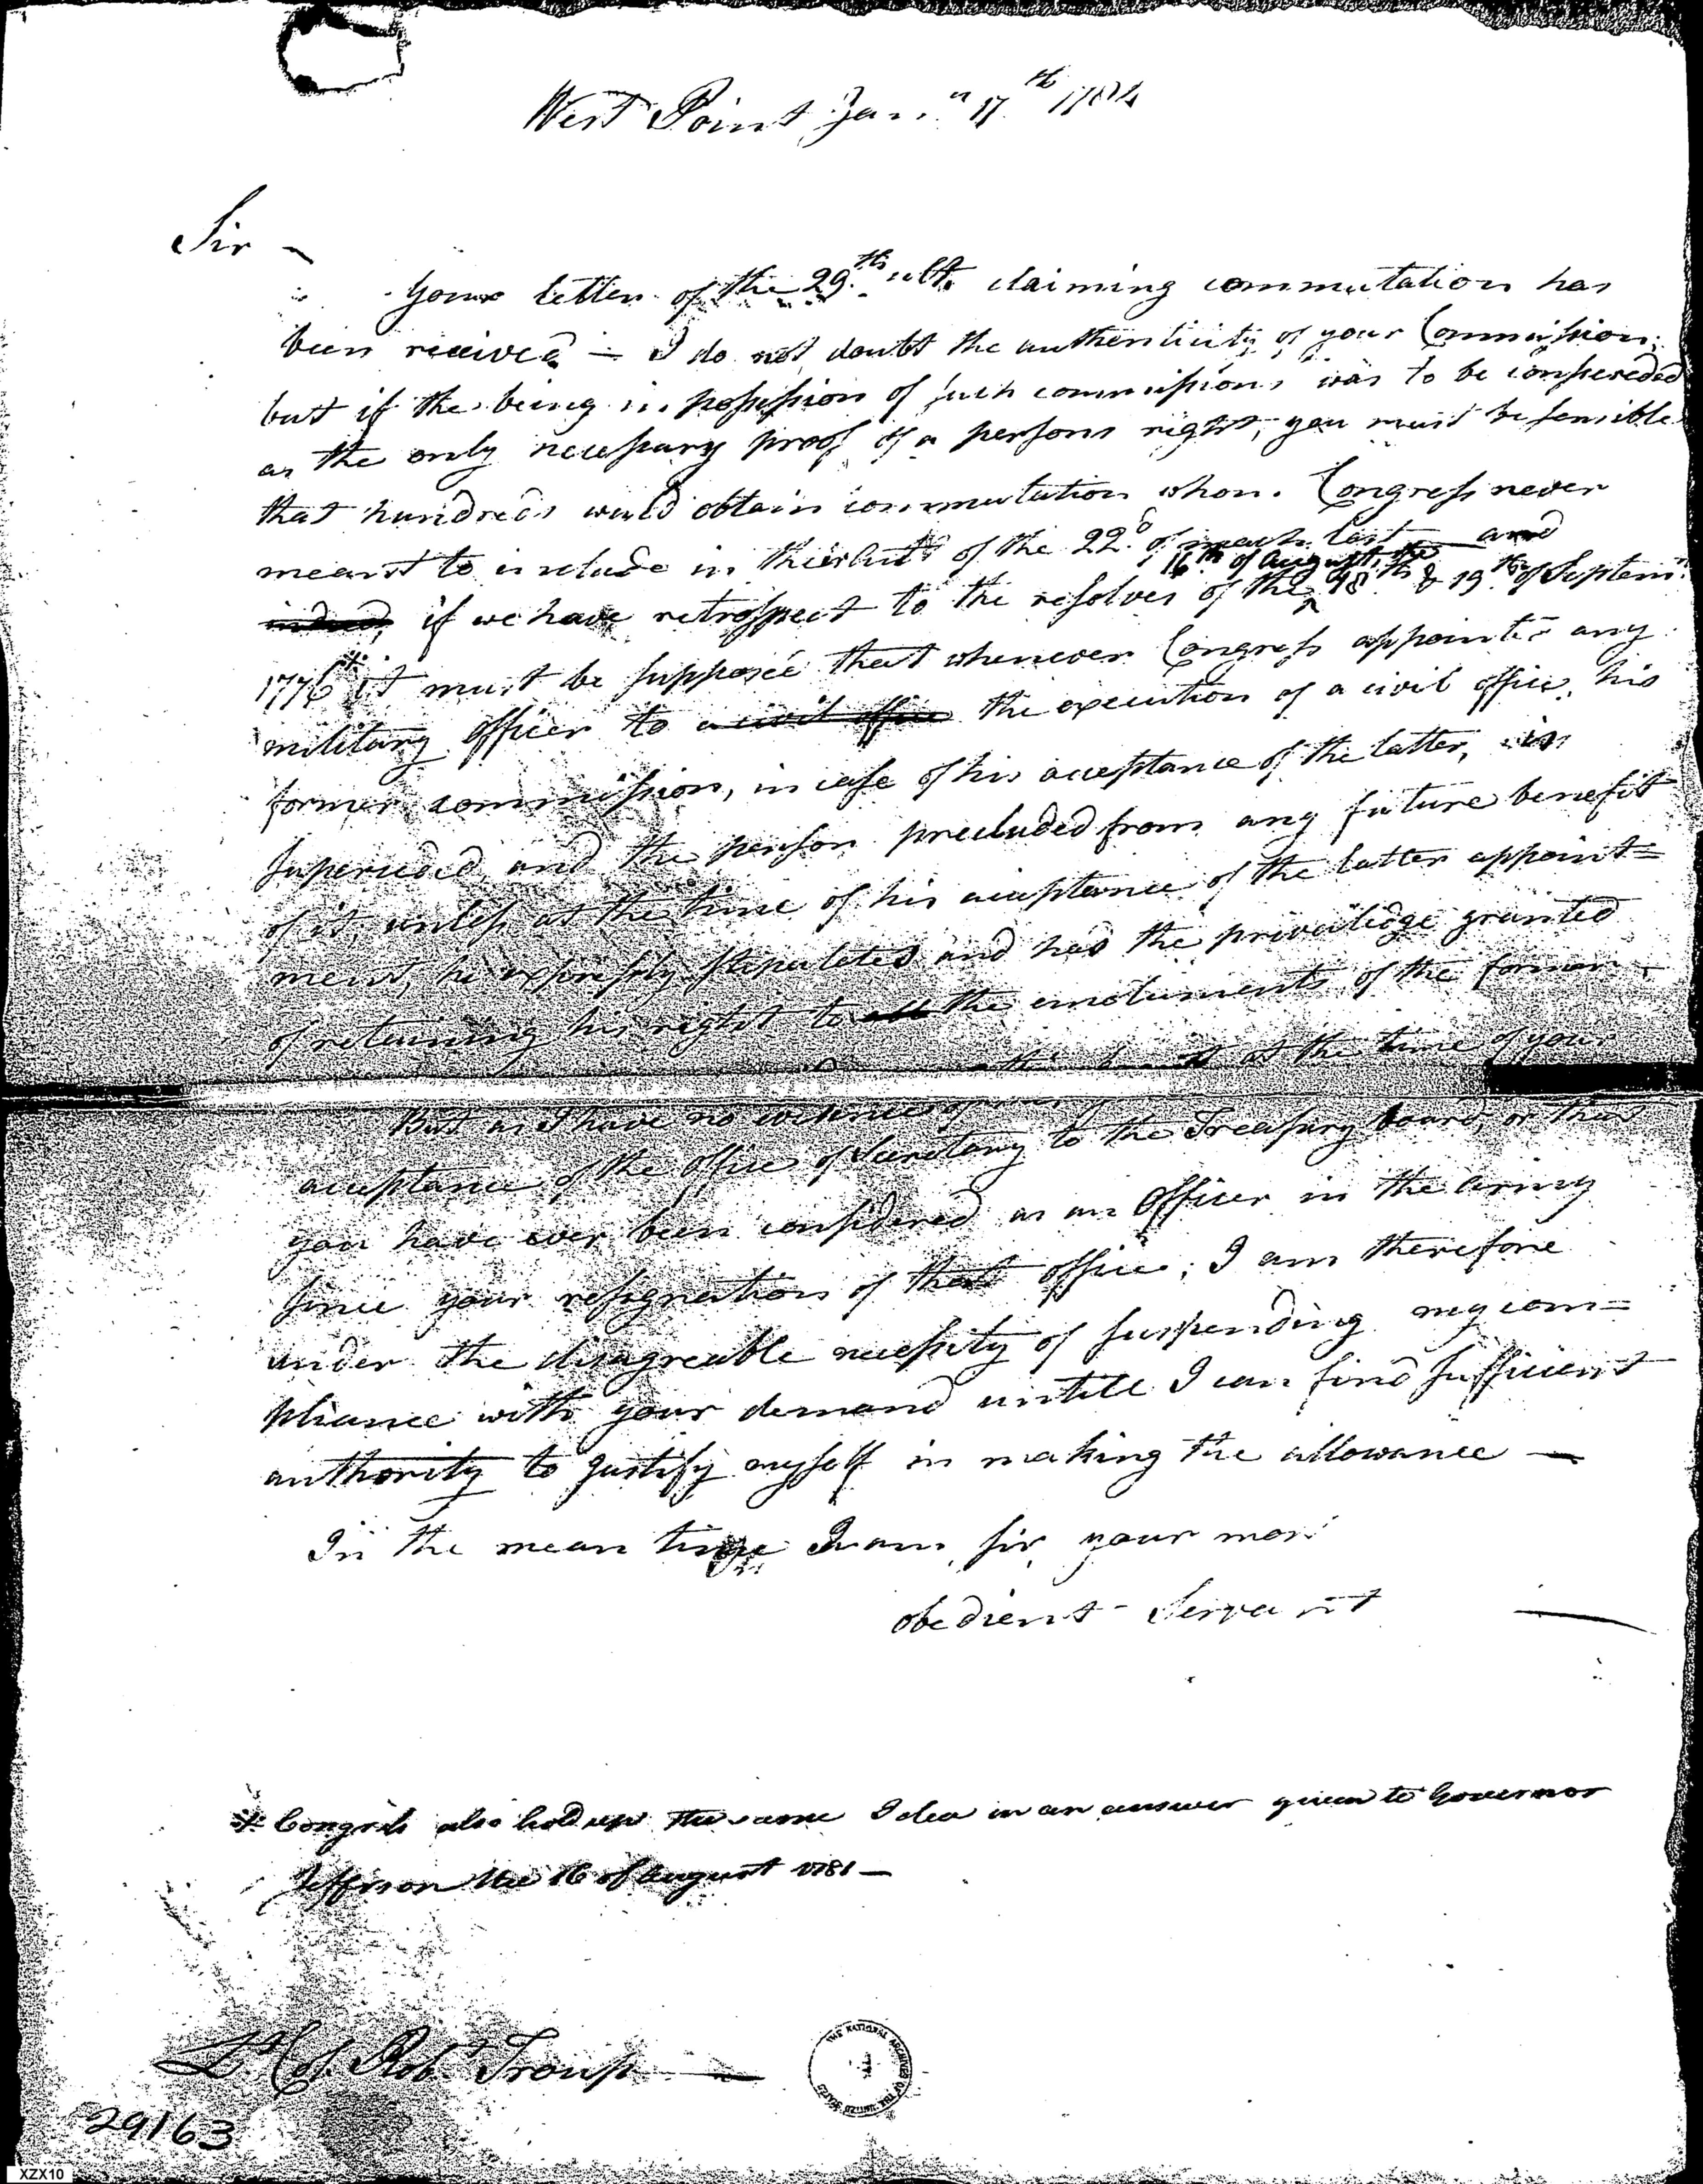 West Point Jan.y 17th 1784
Sir –
Your letter of the 29.th ult. claiming commutation has
been received – I do not doubt the authenticity of your Commission;
but if the being in possession of such commissions was to be conscereded
as the only necessary proof of a persons right, you must be sensible
that hundreds would obtain commutation whom Congress never
meant to include in their of the 22.d of march last and
indeed, if we have retrospect to the resolves of the 16th of August, the 18.th & 19.th of Septem.r
1776 * it must be supposed that whenever Congress appointed any
military officer to a civil office the execution of a civil office, his
former commission, in case of his acceptance of the latter, is
superceded and the person precluded from any future benefit
of it, unless at the time of his acceptance of the latter appoint=
ment, he expressly stipulated and had the priviledge granted
of retaining his right to all the emoluments of the former
at the time of your
But as I have no evidence
acceptance of the office of Secretary to the Treasury board, or that
you have ever been considered as an Officer in the army
since your resignation of that office; I am therefore
under the disagreable necessity of suspending my com=
pliance with your demand untill I can find sufficient
authority to justify myself in making the allowance –
In the mean time I am, sir, your most
obedient Servant
* Congress also hold up the same Idea in an answer given to Governor
Jefferson the 16 of August 1781 –
Lt. Col. Robt. Troup
29163
THE NATIONAL ARCHIVES OF THE UNITED STATES
XZX10